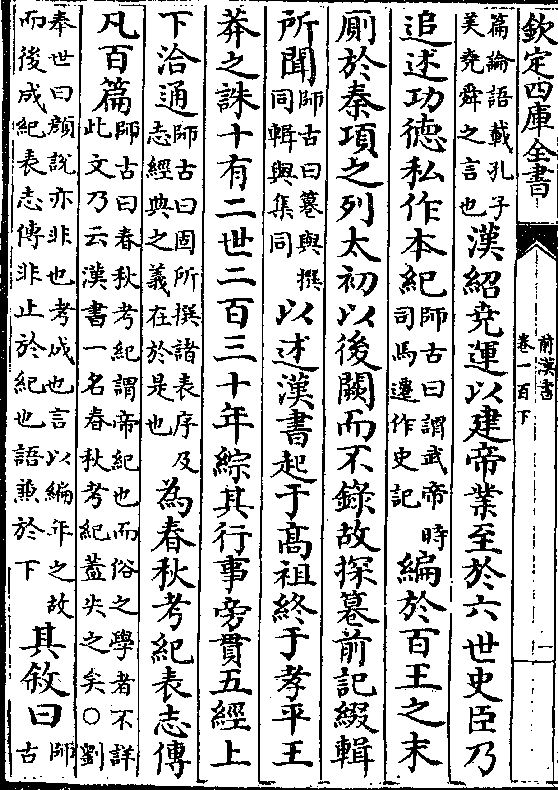 欽定四庫全書
前漢書
卷一百下
篇論語載孔子美堯舜之言也漢紹堯運以建帝業至於六世史臣乃
追述功德私作本紀師古曰謂武帝時司馬遷作史記編於百王之末
廁於秦項之列太初以後闕而不錄故探篹前記綴輯
所聞師古曰篹與撰同輯與集同以述漢書起于髙祖終于孝平王
莽之誅十有二世二百三十年綜其行事旁貫五經上
下洽通師古曰固所撰諸表序及志經典之義在於是也為春秋考紀表志傳
凡百篇師古曰春秋考紀謂帝紀也而俗之學者不詳此文乃云漢書一名春秋考紀葢失之矣○劉
奉世曰顔説亦非也考成也言以編年之故而後成紀表志傳非止於紀也語兼於下其敘曰師古